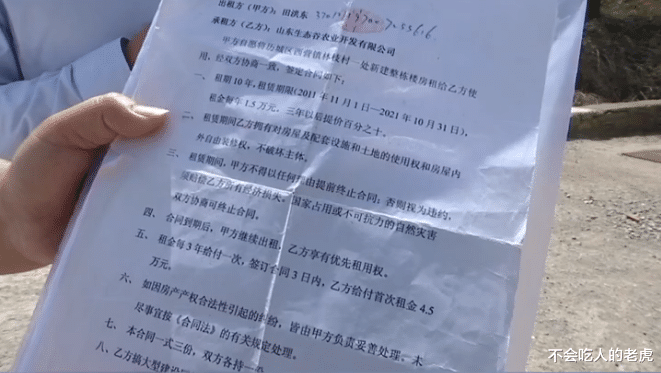 出租方(甲方):田洪东
承租方(乙方):山东生态谷农业开发有限公司
甲方自愿将历城区西营镇林枝村一处新建整栋楼房租给乙方使
用,经双方协商一致,签定合同如下:
一、租期10年,租赁期限(2011年11月1日—2021年10月31日),
租金每年1.5万元,三年以后提价百分之十。
二、租赁期间乙方拥有对房屋及配套设施和土地的使用权和房屋内
外自由装修权,不破坏主体。
三、租赁期间,甲方不得以任何理由提前终止合同;否则视为违约,
须赔偿乙方所有经济损失。国家占用或不可抗力的自然灾害
双方协商可终止合同。
四、合同到期后,甲方继续出租,乙方享有优先租用权。
五、租金每3年给付一次,签订合同3日内,乙方给付首次租金4.5
万元。
六、如因房产产权合法性引起的纠纷,皆由甲方负责妥善处理、未
尽事宜按《合同法》的有关规定处理。
七、本合同一式三份,双方各持一
八、乙方搞大型建设
不会吃人的老虎